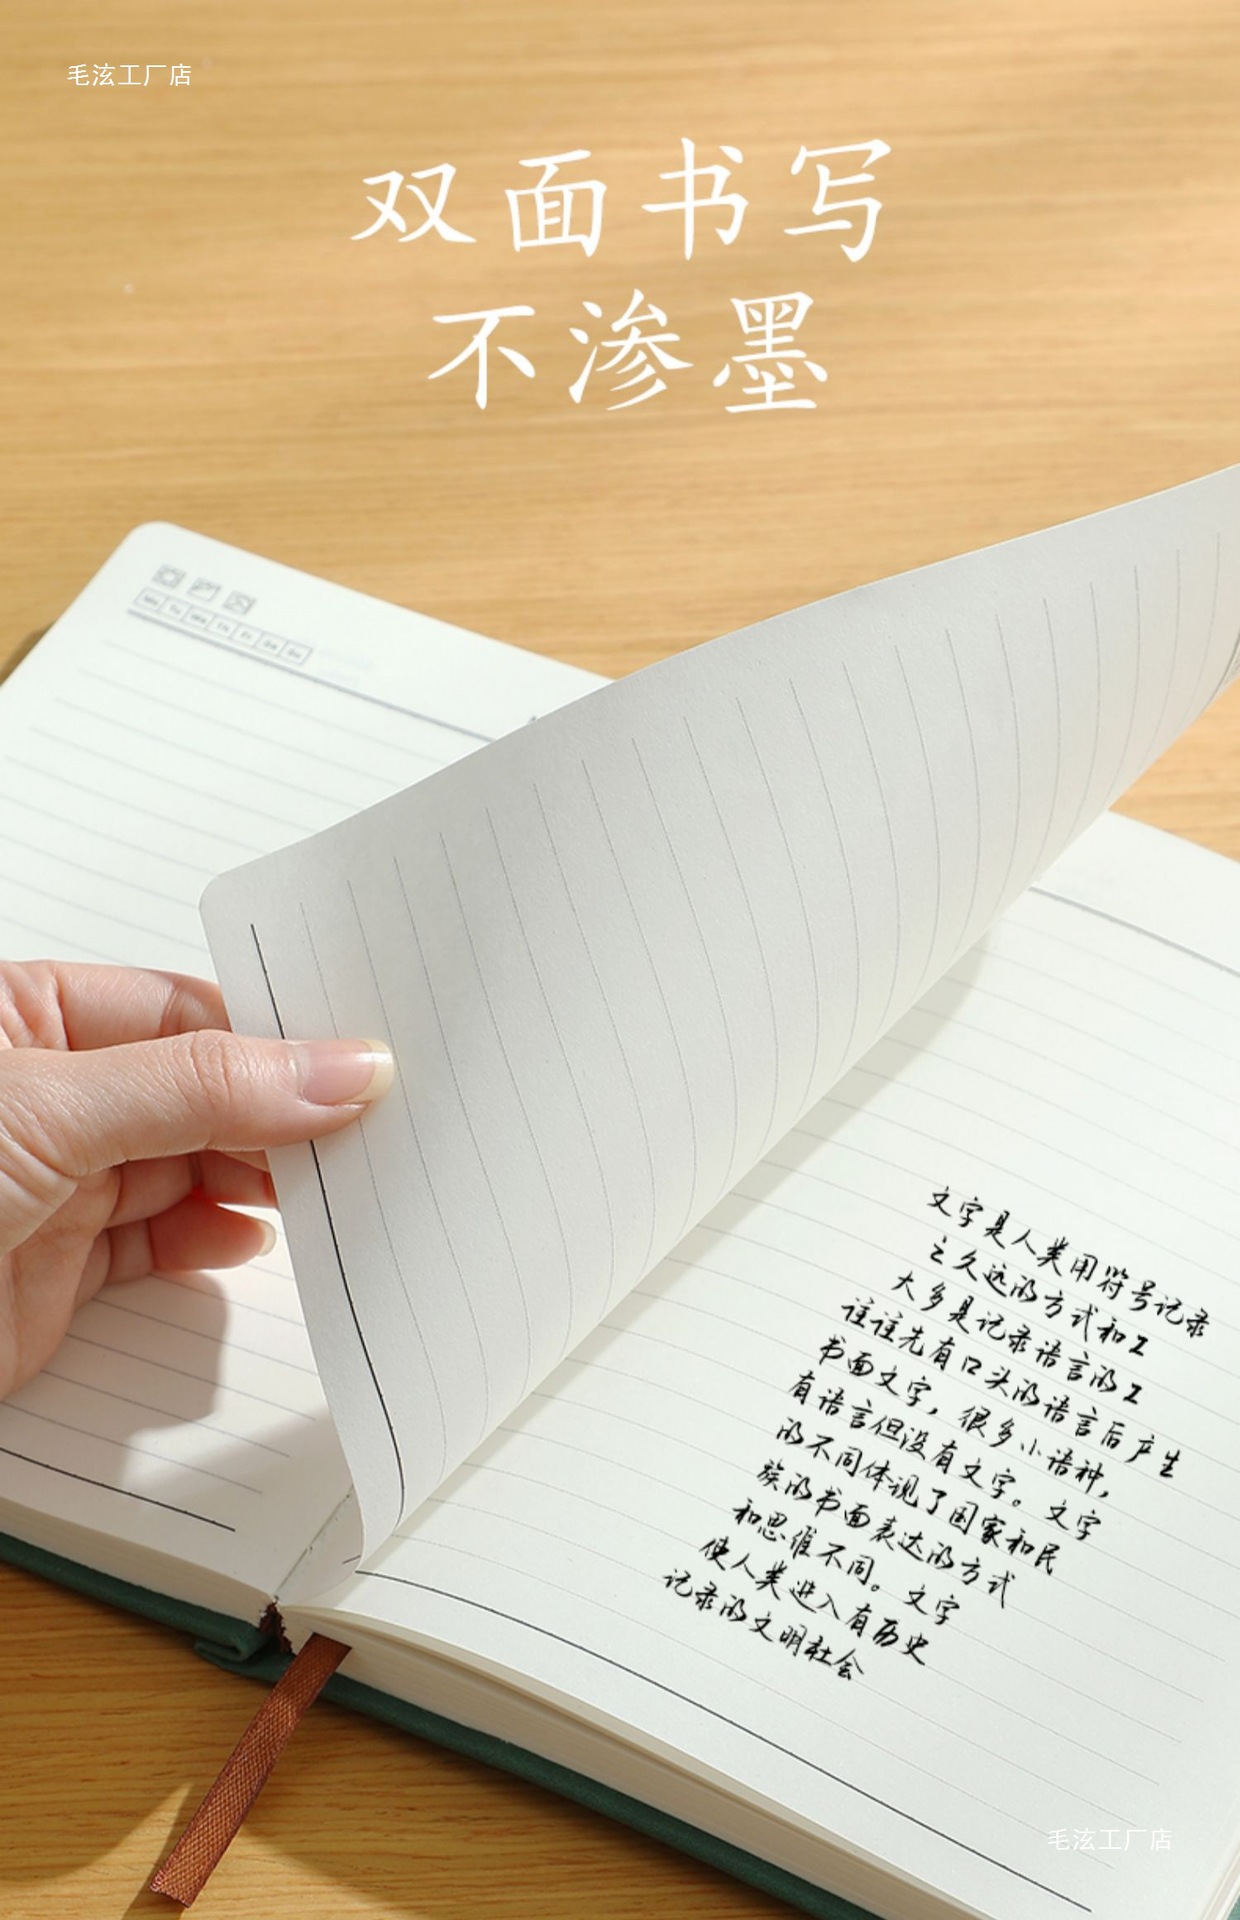 毛泫工厂店
双面书写
不渗墨
文字是人类用符号记录
之久远的方式和工
大多是记录语言的工
往往先有口头的语言后产生
书面文字，很多小语种，
有语言但没有文字。文字
的不同体现了国家和民
族的书面表达的方式
和思维不同。文字
使人类进入有历史
记录的文明社会
毛泫工厂店